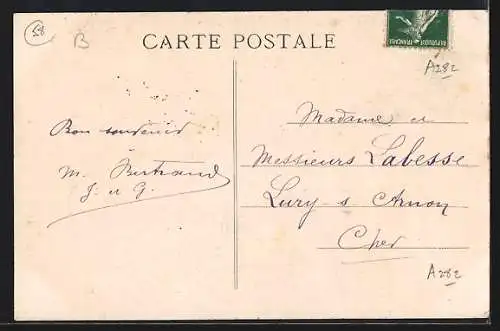 58
B
CARTE POSTALE
REPUBLIQUE FRANÇAISE
A282
Bon souvenir
M. Bertrand
J. et G.
Madame et
Messieurs Labesse
Lury s Arnon
Cher
A282